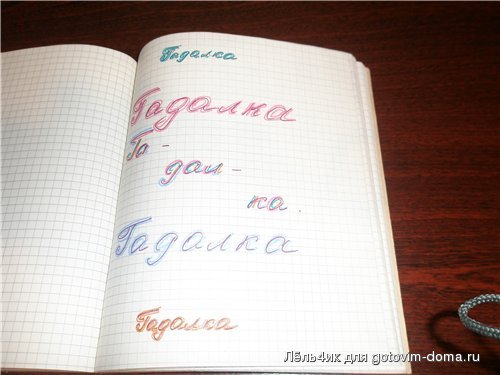 Гадалка
Гадалка
Га-
дал-
ка.
Гадалка
Гадалка
Лёль4ик для gotovim-doma.ru